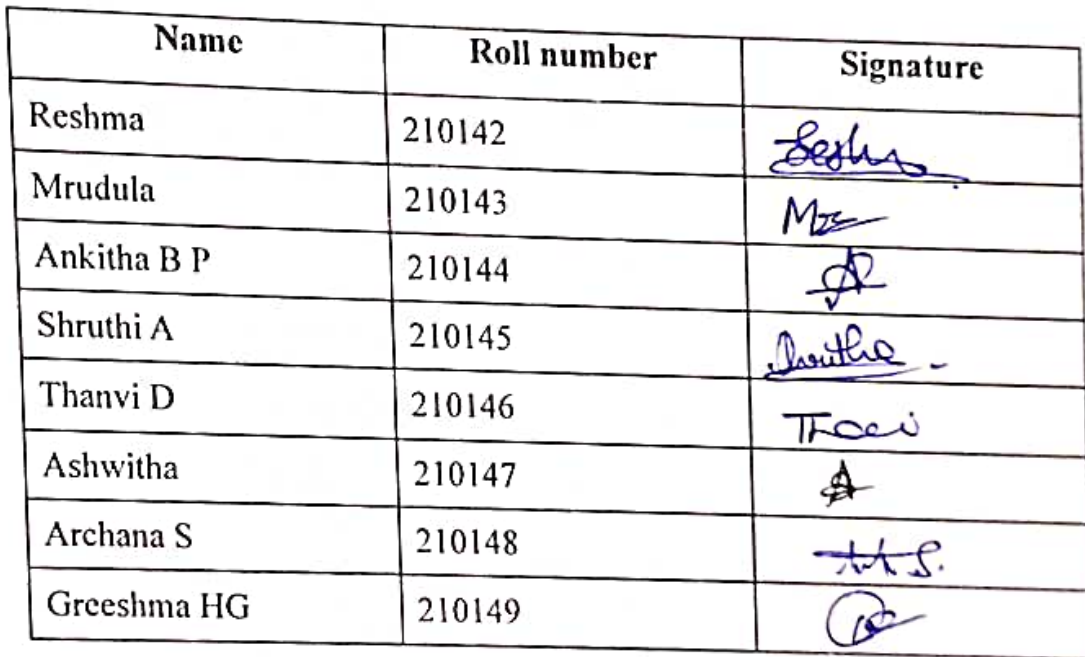 Name Roll number Signature
Reshma 210142
Mrudula 210143
Ankitha B P 210144
Shruthi A 210145
Thanvi D 210146
Ashwitha 210147
Archana S 210148
Greeshma HG 210149